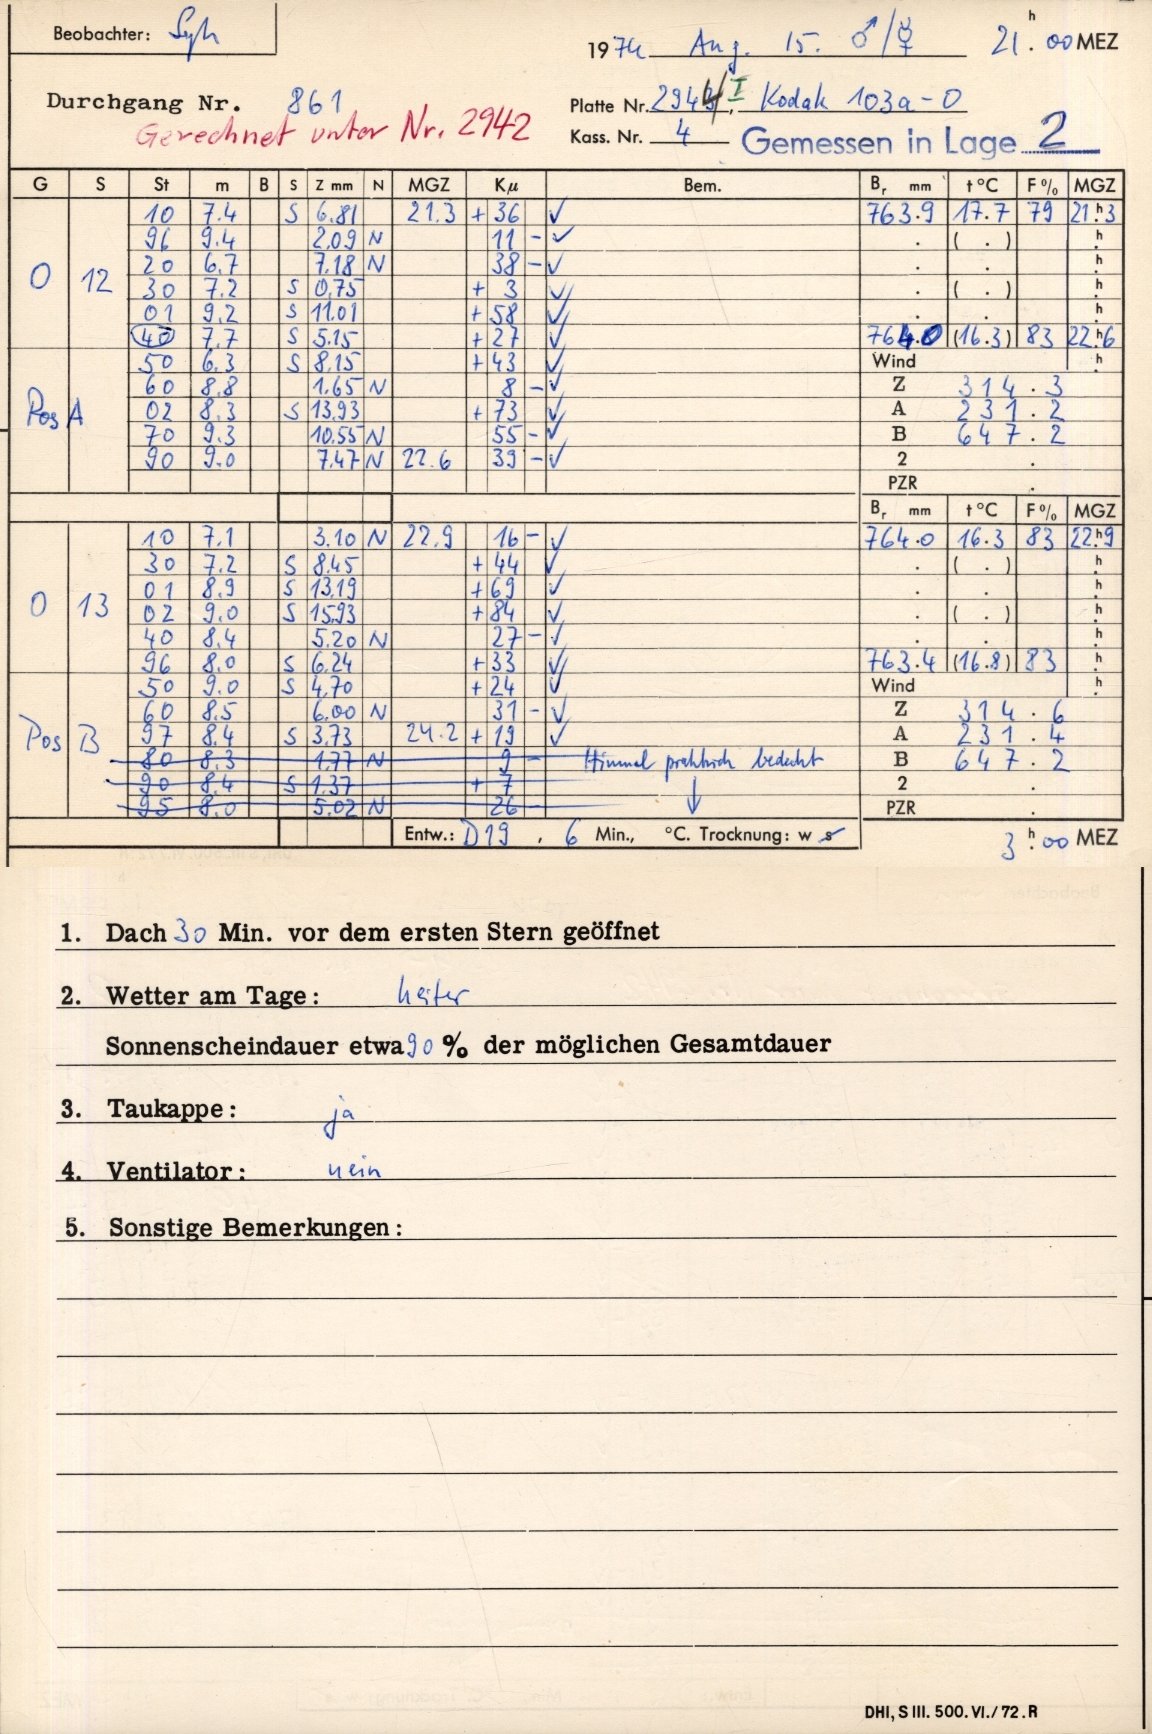 Beobachter:
1974 Aug. 15. ♂/☿ 21ʰ.00 MEZ
Durchgang Nr. 861
Platte Nr. 294 I, Kodak 103a-O
Gerechnet unter Nr. 2942
Kass. Nr. 4 Gemessen in Lage 2
G S St m B S Z mm N MGZ Kμ Bem. Br mm t °C F % MGZ
10 7.4 S 6.81 21.3 + 36 ✓ 763.9 17.7 79 21ʰ.3
96 9.4 2.09 N 11 - ✓ . ( . ) ʰ.
20 6.7 7.18 N 38 - ✓ . . ʰ.
O 12 30 7.2 S 0.75 + 3 ✓ . ( . ) ʰ.
01 9.2 S 11.01 + 58 ✓ . . ʰ.
40 7.7 S 5.15 + 27 ✓ 764.0 (16.3) 83 22ʰ.6
50 6.3 S 8.15 + 43 ✓ Wind ʰ.
60 8.8 1.65 N 8 - ✓ Z 314.3
Pos A 02 8.3 S 13.93 + 73 ✓ A 231.2
70 9.3 10.55 N 55 - ✓ B 647.2
90 9.0 7.47 N 22.6 39 - ✓ 2 .
PZR .
Br mm t °C F % MGZ
10 7.1 3.10 N 22.9 16 - ✓ 764.0 16.3 83 22ʰ.9
30 7.2 S 8.45 + 44 ✓ . ( . ) ʰ.
01 8.9 S 13.19 + 69 ✓ . . ʰ.
O 13 02 9.0 S 15.93 + 84 ✓ . ( . ) ʰ.
40 8.4 5.20 N 27 - ✓ . . ʰ.
96 8.0 S 6.24 + 33 ✓ 763.4 (16.8) 83 ʰ.
50 9.0 S 4.70 + 24 ✓ Wind ʰ.
60 8.5 6.00 N 31 - ✓ Z 314.6
Pos B 97 8.4 S 3.73 24.2 + 19 ✓ A 231.4
80 8.3 1.77 N 9 - Himmel praktisch bedeckt B 647.2
90 8.4 S 1.37 + 7 2 .
95 8.0 5.02 N 26 - ↓ PZR .
Entw.: D19, 6 Min., °C. Trocknung: w s
3ʰ.00 MEZ
1. Dach 30 Min. vor dem ersten Stern geöffnet
2. Wetter am Tage: heiter
Sonnenscheindauer etwa 90 % der möglichen Gesamtdauer
3. Taukappe: ja
4. Ventilator: nein
5. Sonstige Bemerkungen:
DHI, S III. 500. VI./72. R